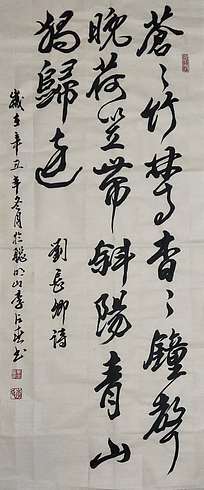 蒼〻竹林寺杳〻鐘聲
晚荷笠帶斜陽青山
獨歸遠
劉長卿詩
歲在辛丑年冬月於聰明山李